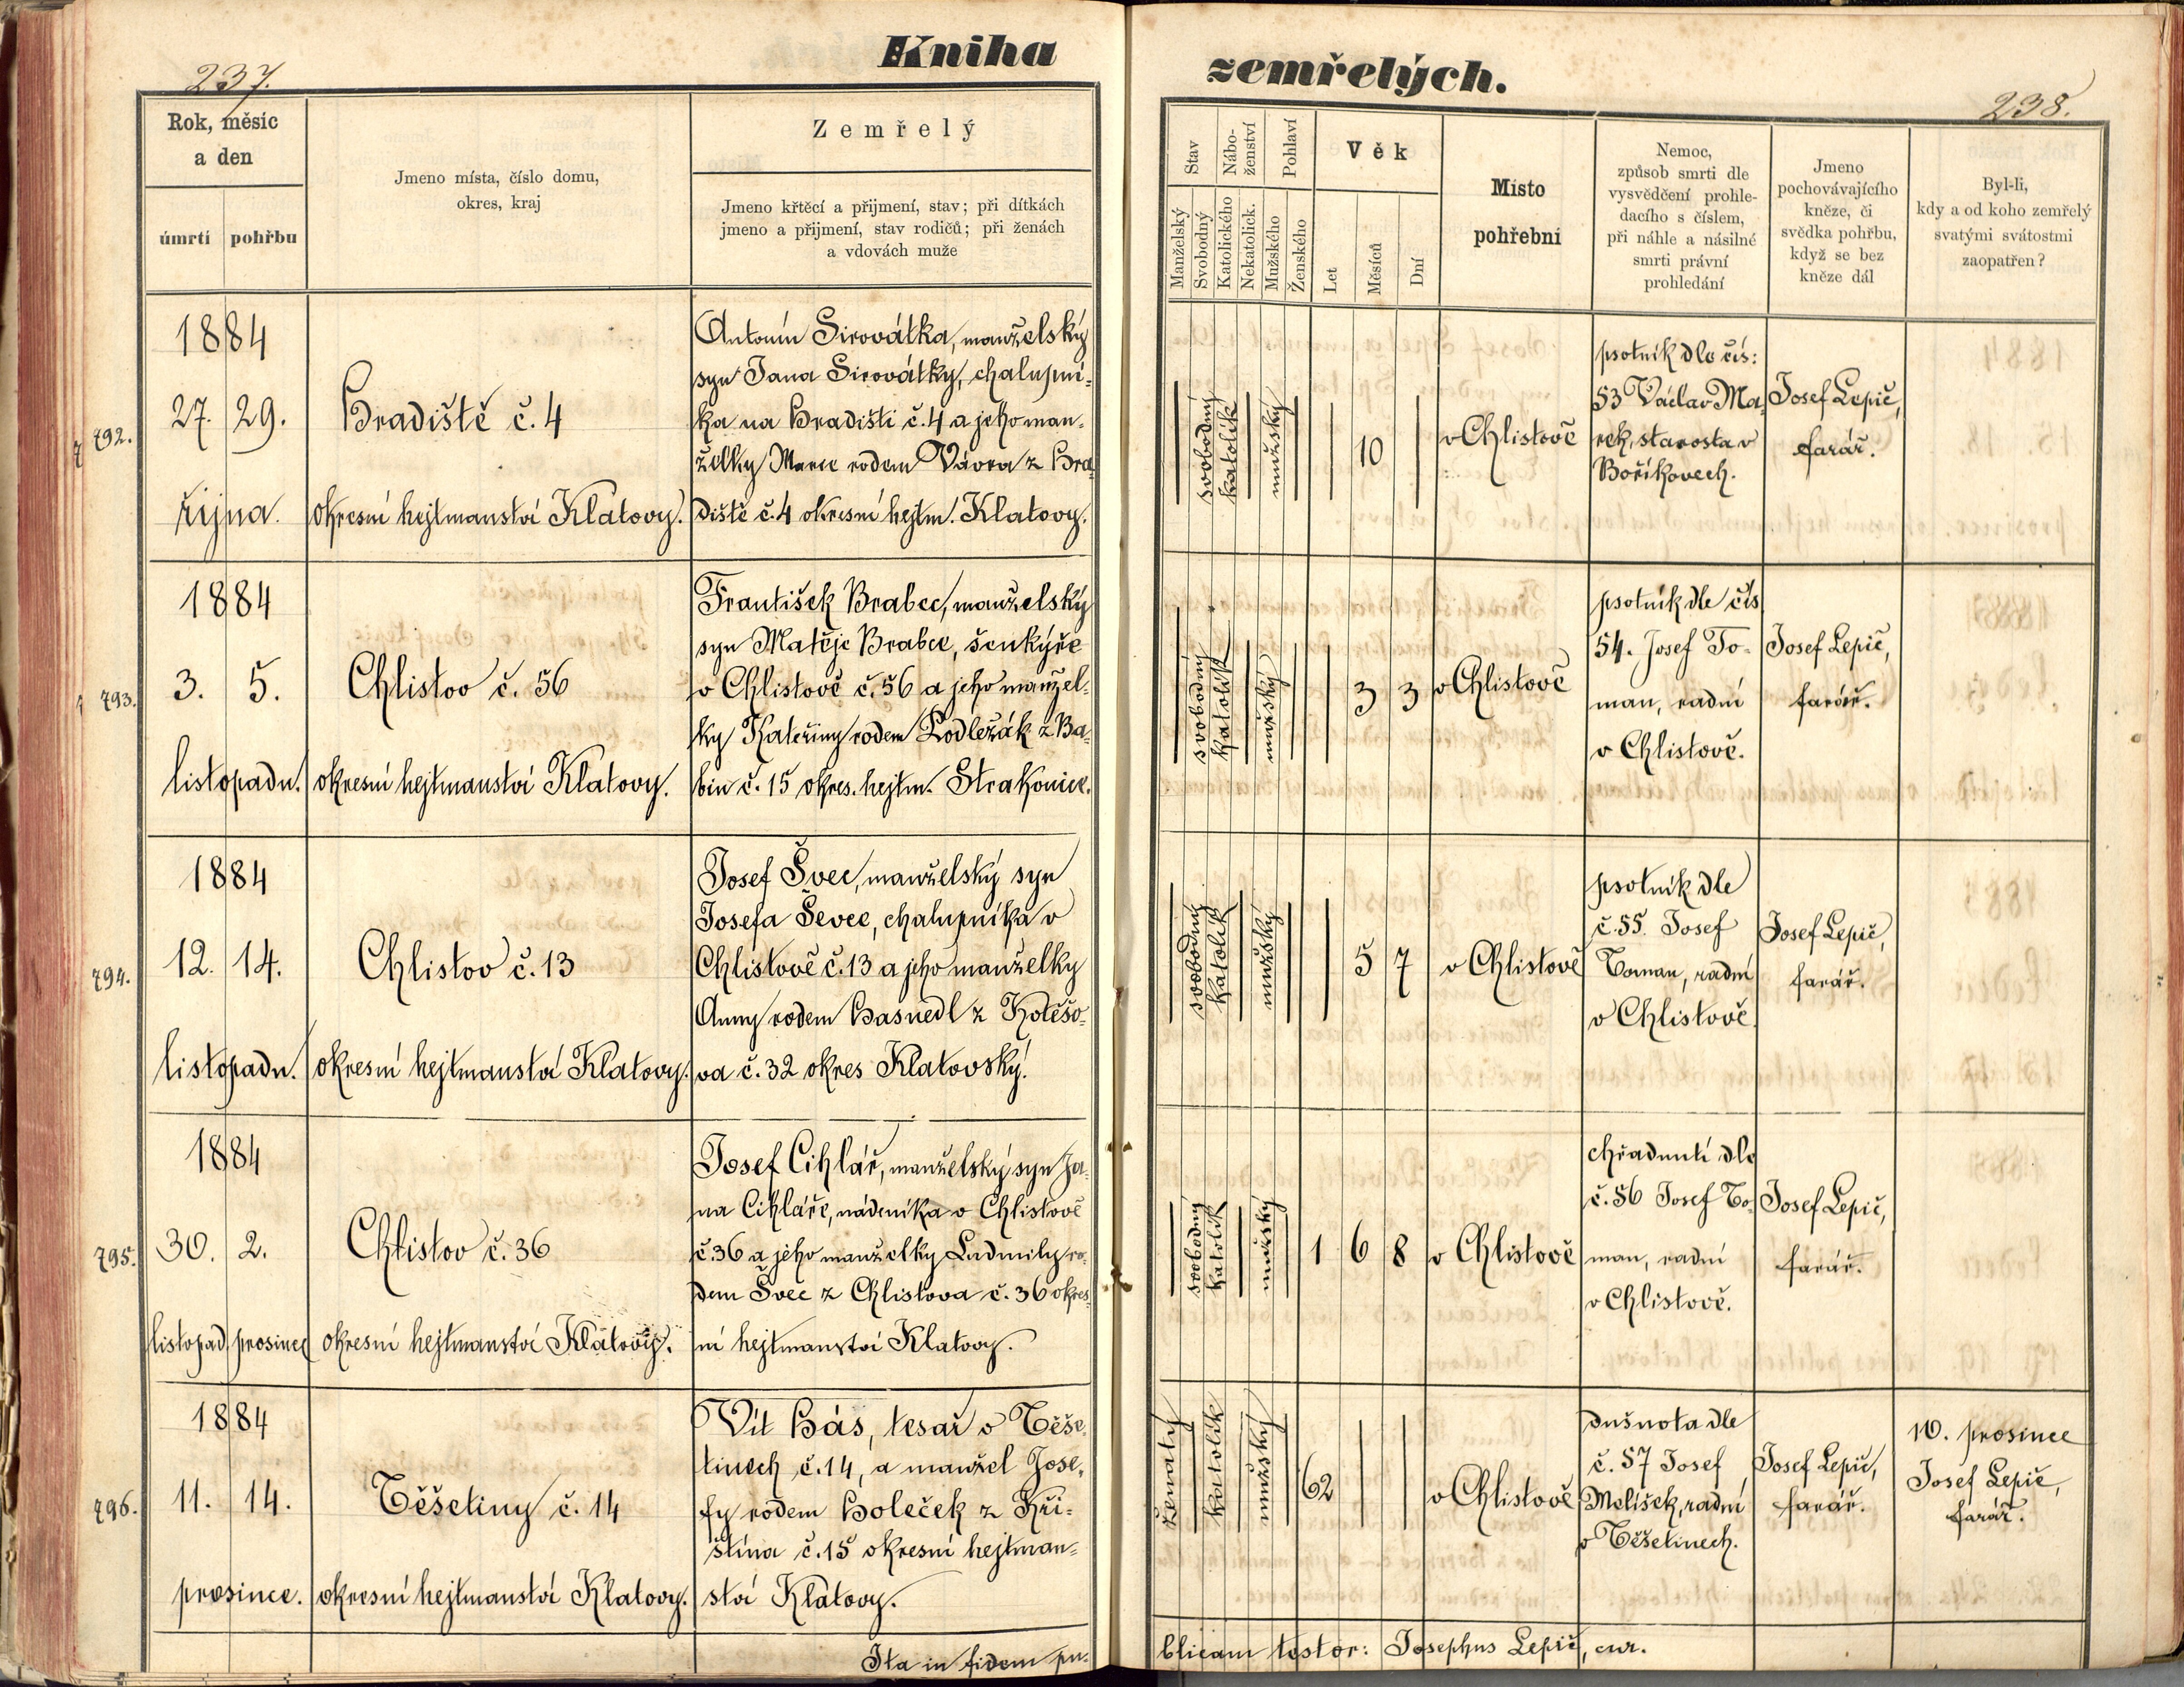 Kniha
zemřelých.
237.
238.
Rok, měsíc
a den
úmrtí
pohřbu
Jmeno místa, číslo domu,
okres, kraj
Zemřelý
Jmeno křtěcí a přijmení, stav; při dítkách
jmeno a přijmení, stav rodičů; při ženách
a vdovách muže
Stav
Nábo-
ženství
Pohlaví
Manželský
Svobodný
Katolického
Nekatolick.
Mužského
Ženského
Věk
Let
Měsíců
Dní
Místo
pohřební
Nemoc,
způsob smrti dle
vysvědčení prohle-
dacího s číslem,
při náhle a násilné
smrti právní
prohledání
Jmeno
pochovávajícího
kněze, či
svědka pohřbu,
když se bez
kněze dál
Byl-li,
kdy a od koho zemřelý
svatými svátostmi
zaopatřen?
792.
1884
27. 29.
října.
Hradiště č. 4
okresní hejtmanství Klatovy.
Antonín Sirovátka, manželský
syn Jana Sirovátky, chalupní-
ka na Hradišti č. 4 a jeho man-
želky Marie rodem Vávra z Hra-
diště č. 4 okresní hejtm. Klatovy.
svobodný
katolík
mužský
10
v Chlistově
psotník dle čís:
53 Václav Ma-
rek, starosta v
Boříkovech.
Josef Lepič,
farář.
793.
1884
3. 5.
listopadu.
Chlistov č. 56
okresní hejtmanství Klatovy.
František Brabec, manželský
syn Matěje Brabce, šenkýře
v Chlistově č. 56 a jeho manžel-
ky Kateřiny rodem Podležák z Ba-
bin č. 15 okres. hejtm. Strakonice.
svobodný
katolík
mužský
3 3
v Chlistově
psotník dle čís
54. Josef To-
man, radní
v Chlistově.
Josef Lepič,
farář.
794.
1884
12. 14.
listopadu.
Chlistov č. 13
okresní hejtmanství Klatovy.
Josef Švec, manželský syn
Josefa Ševce, chalupníka v
Chlistově č. 13 a jeho manželky
Anny rodem Hasnedl z Kolešo-
va č. 32 okres Klatovský.
svobodný
katolík
mužský
5 7
v Chlistově
psotník dle
č. 55. Josef
Toman, radní
v Chlistově.
Josef Lepič,
farář.
795.
1884
30. 2.
listopad. prosince
Chlistov č. 36
okresní hejtmanství Klatovy.
Josef Cihlář, manželský syn Ja-
na Cihláře, nádeníka v Chlistově
č. 36 a jeho manželky Ludmily ro-
dem Švec z Chlistova č. 36 okres-
ní hejtmanství Klatovy.
svobodný
katolík
mužský
1 6 8
v Chlistově
chřadnutí dle
č. 56 Josef To-
man, radní
v Chlistově.
Josef Lepič,
farář.
796.
1884
11. 14.
prosince.
Těšetiny č. 14
okresní hejtmanství Klatovy.
Vít Hás, tesař v Těše-
tinech č. 14, a manžel Jose-
fy rodem Holeček z Kři-
štína č. 15 okresní hejtman-
ství Klatovy.
ženatý
katolík
mužský
62
v Chlistově
dušnota dle
č. 57 Josef
Melíšek, radní
v Těšetinech.
Josef Lepič,
farář.
10. prosince
Josef Lepič,
farář.
Ita in fidem pu-
blicam testor: Josephus Lepič, cur.